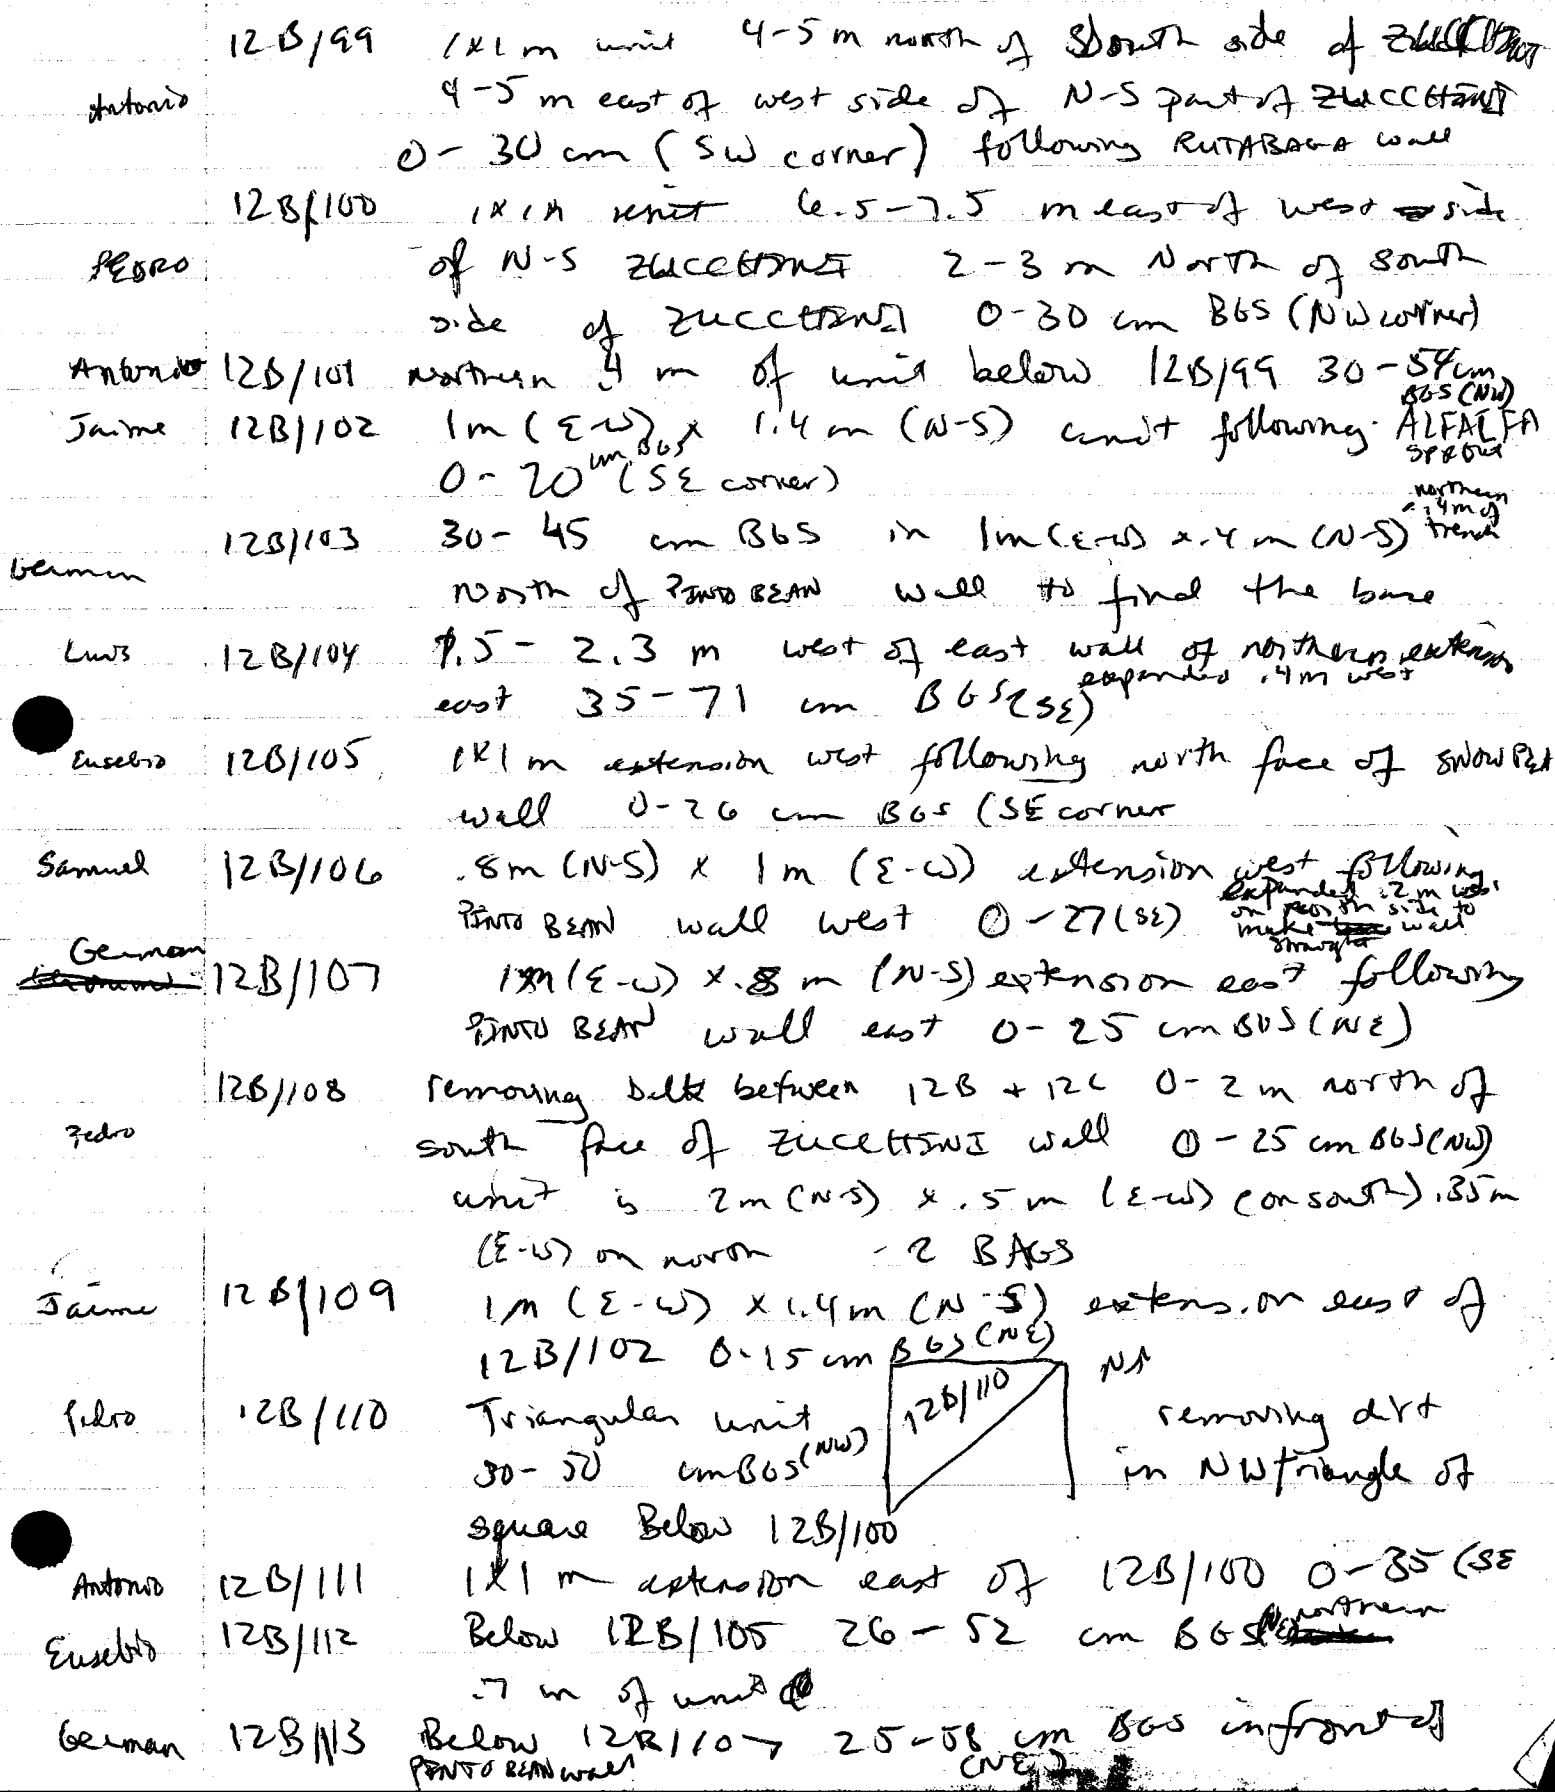 12B/99 1x1m unit 4-5 m north of South side of ZUCCHINI
Antonio 4-5 m east of west side of N-S part of ZUCCHINI
0-30 cm (SW corner) following RUTABAGA wall
12B/100 1x1m unit 6.5-7.5 m east of west side
PEDRO of N-S ZUCCHINI 2-3 m North of south
side of ZUCCHINI 0-30 cm BGS (NW corner)
Antonio 12B/101 northern .4 m of unit below 12B/99 30-54cm
BGS (NW)
Jaime 12B/102 1m (E-W) x 1.4 m (N-S) unit following ALFALFA
SPROUT
0-20 cm BGS (SE corner)
12B/103 30-45 cm BGS in 1m (E-W) x .4 m (N-S) northern
.4m of
trench
German north of PINTO BEAN wall to find the base
Luis 12B/104 1.5-2.3 m west of east wall of northern extension
east 35-71 cm BGS (SE) expanded .4m west
Eusebio 12B/105 1x1 m extension west following north face of SNOW PEA
wall 0-26 cm BGS (SE corner
Samuel 12B/106 .8m (N-S) x 1m (E-W) extension west following
PINTO BEAN wall west 0-27 (SE) expanded .2 m west
on north side to
make wall
straight
German 12B/107 1m (E-W) x .8 m (N-S) extension east following
PINTO BEAN wall east 0-25 cm BGS (NE)
12B/108 removing balk between 12B + 12C 0-2 m north of
Pedro south face of ZUCCHINI wall 0-25 cm BGS (NW)
unit is 2m (N-S) x .5 m (E-W) (on south) .35m
(E-W) on north - 2 BAGS
Jaime 12B/109 1m (E-W) x 1.4m (N-S) extension east of
12B/102 0-15 cm BGS (NE)
N↑
Pedro 12B/110 Triangular unit 12B/110 removing dirt
30-50 cm BGS (NW) in NW triangle of
square Below 12B/100
Antonio 12B/111 1x1 m extension east of 12B/100 0-35 (SE
Eusebio 12B/112 Below 12B/105 26-52 cm BGS (NE) northern
.7 m of unit
German 12B/113 Below 12B/107 25-58 cm BGS in front of
PINTO BEAN wall (NE)